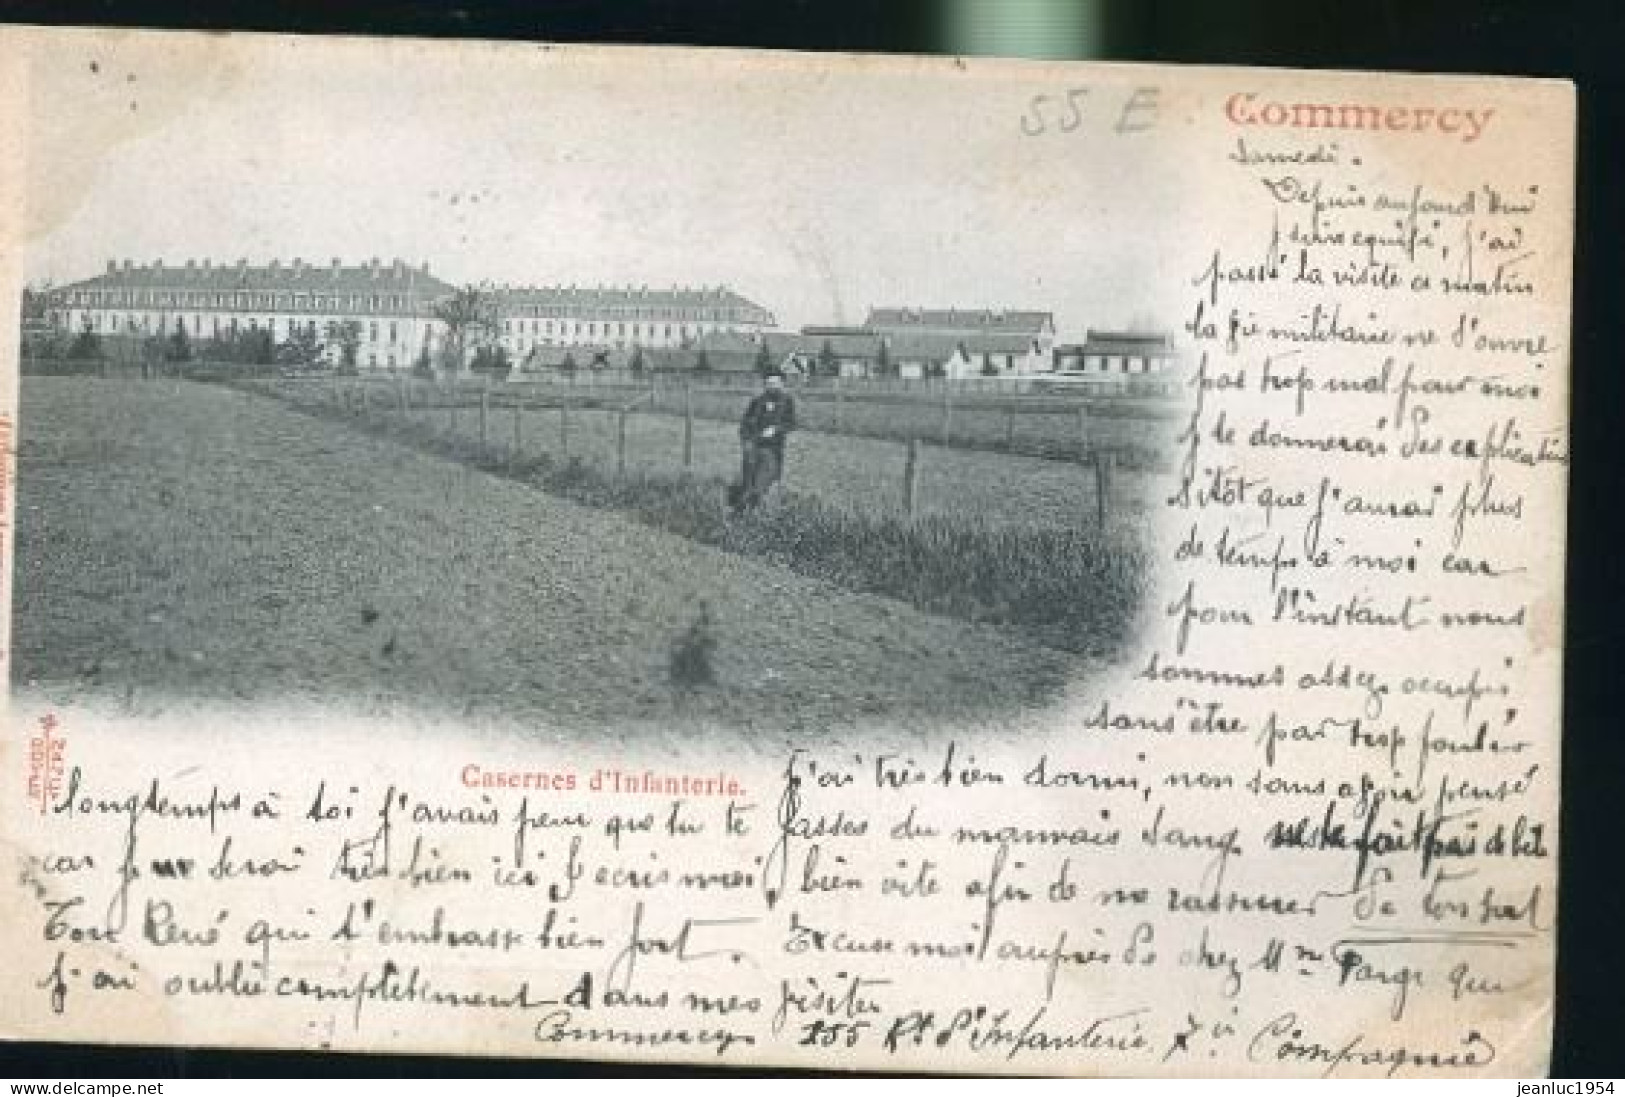 55 E
Commercy
Samedi.
Depuis aujourd'hui
j suis equipé, j'ai
passé la visite ce matin
la vie militaire ne s'ouvre
pas trop mal pour moi
j te donnerai des explications
sitôt que j'aurai plus
de temps à moi car
pour l'instant nous
sommes assez occupés
sans être par trop foulés
j'ai très bien dormi, non sans avoir pensé
Casernes d'Infanterie.
longtemps à toi j'avais peur que tu te fasses du mauvais sang ne te fait pas de bile
car je serai très bien ici, écris moi bien vite afin de me rassurer de ton sort
Ton René qui t'embrasse bien fort. Excuse moi auprès de chez Mme que
j'ai oublié complètement dans mes visites
Commercy 155 Rt d'Infanterie 7e Compagnie
jeanluc1954